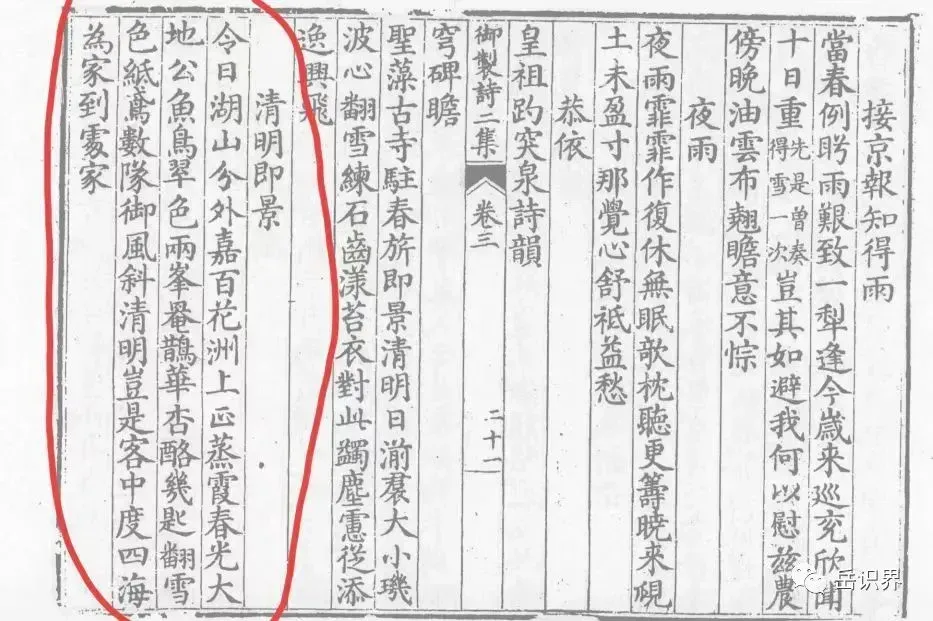 接京報知得雨
當春例盻雨艱致一犁逢今嵗来巡兖欣聞
十日重先是曾奏得雪一次豈其如避我何以慰兹農
傍晚油雲布翹瞻意不悰
夜雨
夜雨霏霏作復休無眠欹枕聽更籌曉来覘
土未盈寸那覺心舒祗益愁
恭依
皇祖趵突泉詩韻
御製詩二集 卷三 二十一
穹碑瞻
聖藻古寺駐春旂即景清明日湔裠大小璣
波心翻雪練石齒漾苔衣對此蠲塵慮從添
逸興飛
清明即景
令日湖山分外嘉百花洲上正蒸霞春光大
地公魚鳥翠色兩峯罨鵲華杏酪幾匙翻雪
色紙鳶數隊御風斜清明豈是客中度四海
為家到處家
岳识界